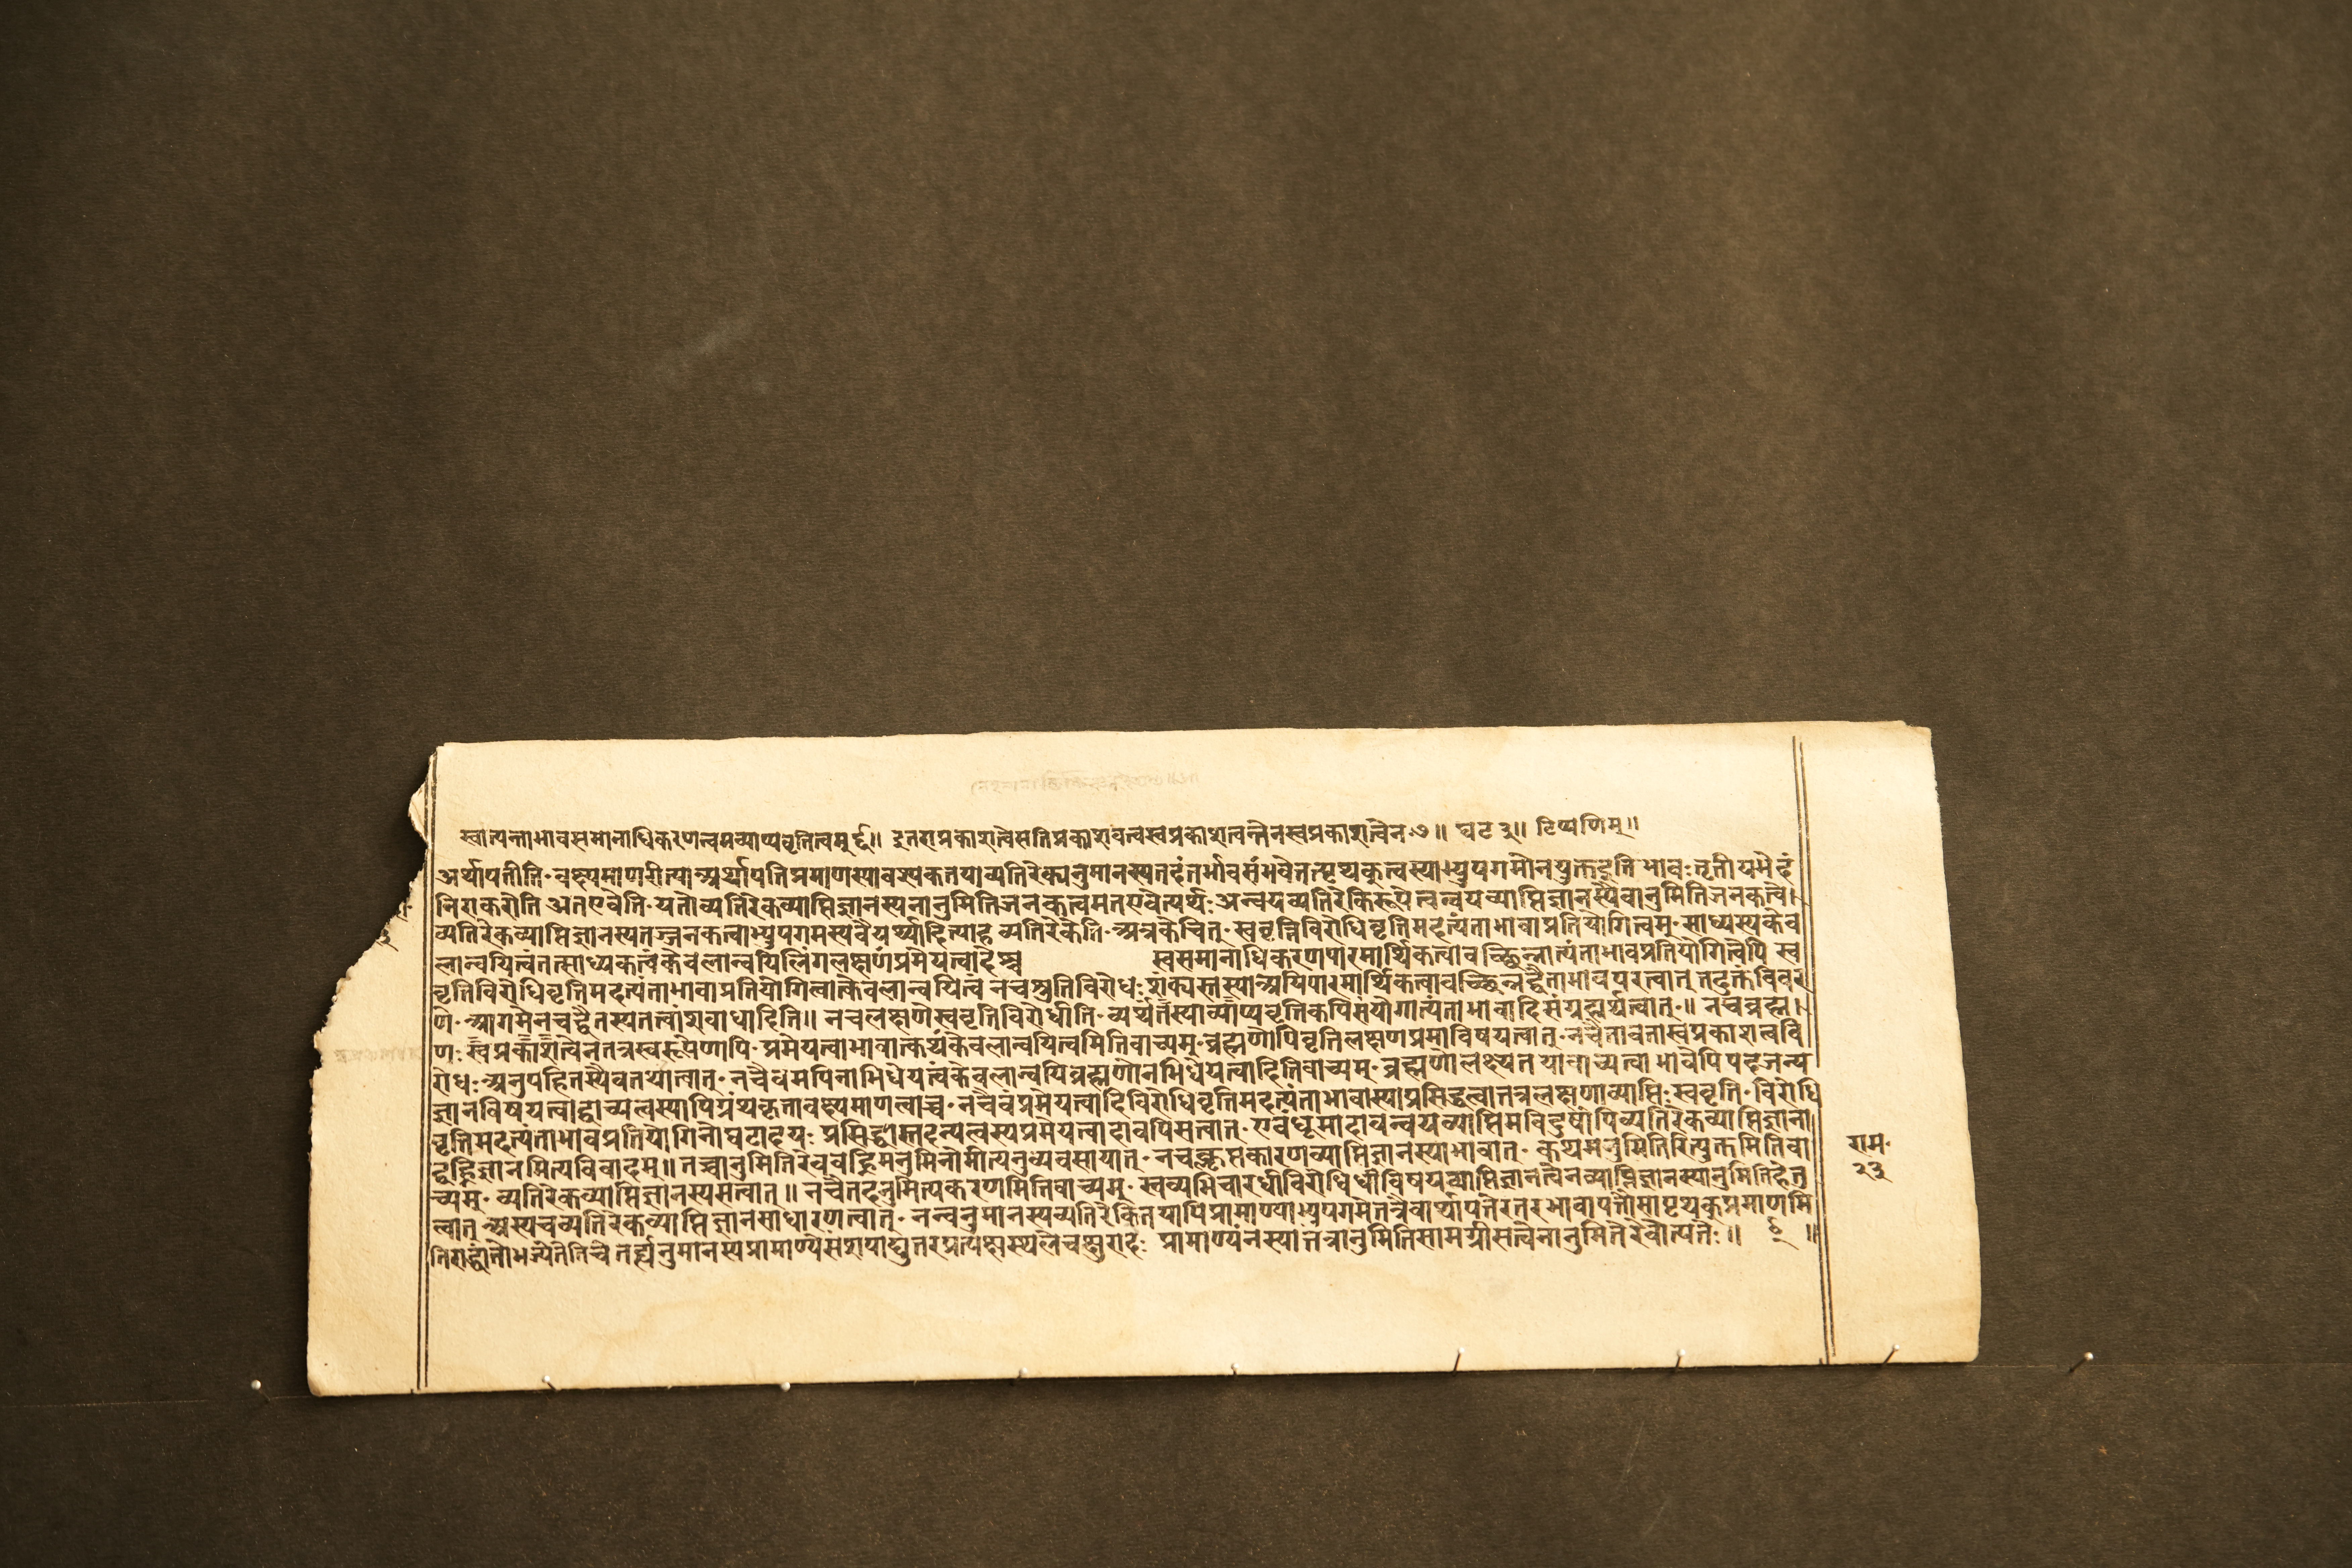 स्वात्यन्ताभावसमानाधिकरणत्वमव्याप्यवृत्तित्वम् ६॥ इतराप्रकाशत्वेसतिप्रकाशवत्वस्वप्रकाशत्वन्तेनस्वप्रकाशत्वेन ७॥ घट ३॥ टिप्पणिम्॥
अर्थापतीति॰वक्ष्यमाणरीत्यान्अर्थापत्तिप्रमाणस्यावश्यकतयाव्यतिरेक्यनुमानस्यतदंतर्भावसंभवेतत्पृथक्त्वस्याभ्युपगमोनयुक्तइति भावः तृतीयमेदं
निराकरोति अतएवेति॰यतोव्यतिरेकव्याप्तिज्ञानस्यनानुमितिजनकत्वमतएवेत्यर्थः अन्वयव्यतिरेकिरूपेत्वन्वयव्याप्तिज्ञानस्यैवानुमितिजनकत्वे।
व्यतिरेकव्याप्तिज्ञानस्यतज्जनकत्वाभ्युपगमस्यवैयर्थ्यादित्याह व्यतिरेकेति॰अत्रकेचित्॰स्ववृत्तिविरोधिवृत्तिमदत्यंताभावाप्रतियोगित्वम्॰साध्यस्यकेव
लान्वयित्वंतत्साध्यकत्वंकेवलान्वयिलिंगलक्षणंप्रमेयत्वादेश्च स्वसमानाधिकरणपारमार्थिकत्वावच्छिन्नात्यंताभावप्रतियोगित्वेपि स्व
वृत्तिविरोधिवृत्तिमदत्यंताभावाप्रतियोगित्वात्केवलान्वयित्वं नचश्रुतिविरोधः शंक्यस्तस्यान्अपिपारमार्थिकत्वावच्छिन्नद्वैताभावपरत्वात् तदुक्तंविवर
णे॰आगमेनचद्वैतस्यतत्वांशबाधादिति॥ नचलक्षणेस्ववृत्तिविरोधीति॰व्यर्थंतस्याव्याप्यवृत्तिकपिसंयोगात्यंताभावादिसंग्रहार्थत्वात्॰॥ नचब्रह्म।
णः स्वप्रकाशत्वेनतत्रस्वरूपेणापि॰प्रमेयत्वाभावात्कथंकेवलान्वयित्वमितिवाच्यम्॰ब्रह्मणोपिवृत्तिलक्षणप्रमाविषयत्वात्॰नचैतावतास्वप्रकाशत्ववि
रोधः अनुपहितस्यैवतथात्वात्॰नचैवमपिनाभिधेयत्वंकेवलान्वयिब्रह्मणोनभिधेयत्वादितिवाच्यम्॰ब्रह्मणोलक्ष्यतयावाच्यत्वाभावेपिपदजन्य
ज्ञानविषयत्वाद्वाच्यत्वस्यापिग्रंथकृतावक्ष्यमाणत्वाच्च॰नचैवंप्रमेयत्वादिविरोधिवृत्तिमदत्यंताभावास्याप्रसिद्धत्वात्तत्रलक्षणाव्याप्तिः स्ववृत्ति॰विरोधि
वृत्तिमदत्यंताभावप्रतियोगिनोघटादयः प्रसिद्धास्तदन्यत्वस्यप्रमेयत्वादावपिसत्वात्॰एवंधूमादावन्वयव्याप्तिमविदुषांपिव्यतिरेकव्याप्तिज्ञाना
द्वह्निज्ञानमित्यविवादम्॥ तच्चानुमितिरेववह्निमनुमिनोमीत्यनुव्यवसायात्॰नचक्लृप्तकारणव्याप्तिज्ञानस्याभावात्॰ कथमनुमितिरित्युक्तमितिवा
च्यम्॰ व्यतिरेकव्याप्तिज्ञानस्यसत्वात्॥ नचैतदनुमित्यकरणमितिवाच्यम्॰ स्वव्यभिचारधीविरोधिधीविषयव्याप्तिज्ञानत्वेनव्याप्तिज्ञानस्यानुमितिहेतु
त्वात् अस्यचव्यतिरेकव्याप्तिज्ञानसाधारणत्वात्॰नन्वनुमानस्यव्यतिरेकितयापिप्रामाण्याभ्युपगमेतत्रैवार्थापत्तेरंतरभावापत्तौसापृथक्प्रमाणमि
तिराद्धांतोभज्येतेतिचेतर्ह्यनुमानस्यप्रामाण्येसंशया प्रामाण्यंनस्यात्तत्रानुमितिसामग्रीसत्वेनानुमितेरेवोत्पत्तेः॥ ६ ॥
राम॰
२३